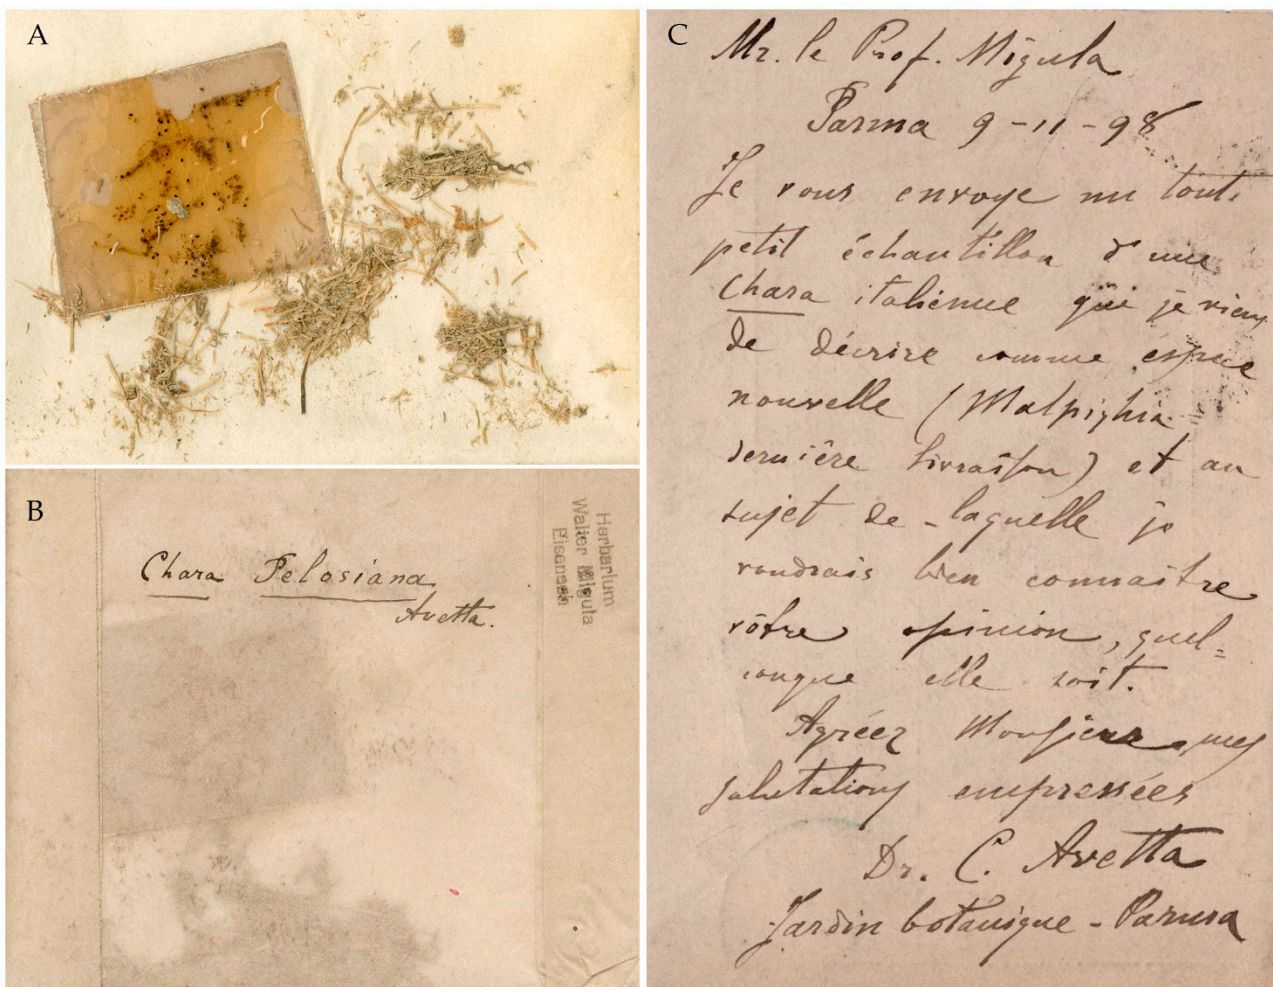 A
B
Chara Pelosiana
Avetta.
Herbarium
Walter Migula
Eisenach
C
Mr. le Prof. Migula
Parma 9-11-98
Je vous envoye un tout
petit échantillon d'une
Chara italienne que je viens
de décrire comme espece
nouvelle (Malpighia
dernière livraison) et au
sujet de laquelle je
voudrais bien connaitre
vôtre opinion, quel=
conque elle soit.
Agréez Monsieur mes
salutations empressées
Dr. C. Avetta
Jardin botanique - Parma